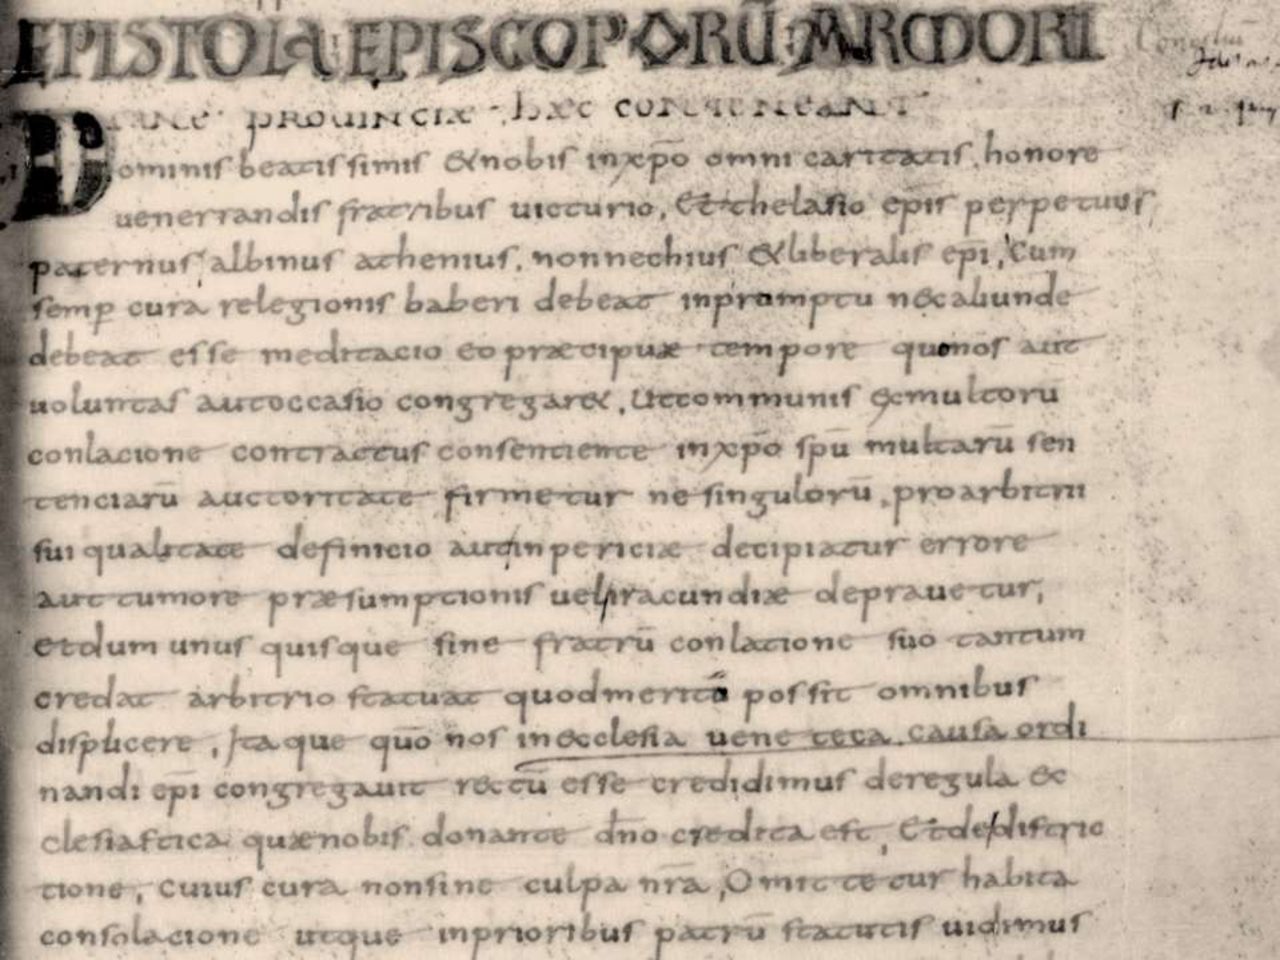 EPISTOLA EPISCOPORŪ ARMORI
TANE PROUINCIÆ hæc conueneant
Dominis beatissimis & nobis in xp̄o omni caritatis honore
uenerrandis fratribus uicturio, Et thelasio epīs perpetuus
paternus albinus athenius, nonnechius & liberalis ep̄i, Cum
semp̱ cura relegionis haberi debeat inpromptu nec aliunde
debeat esse meditacio eo præcipuæ tempore quo nos aut
uoluntas aut occasio congregaret, Ut communis & multorū
conlacione contractus consentiente in xp̄o sp̄u multarū sen
tenciarū auctoritate firmetur ne singulorū, pro arbitrii
sui qualitate definicio aut inpericiæ decipiatur errore
aut tumore præsumptionis uel iracundiæ deprauetur,
et dum unus quisque sine fratrū conlacione suo tantum
credat arbitrio statuat quod merito possit omnibus
displicere, Itaque quō nos in ecclesia uene teca causa ordi
nandi ep̄i congregauit rectū esse credidimus de regula ec
clesiastica quæ nobis donante dn̄o credita est, Et de distric
tione, cuius cura non sine culpa nr̄a, Omitcetur habita
consolacione utque in prioribus patrū statutis uidimus